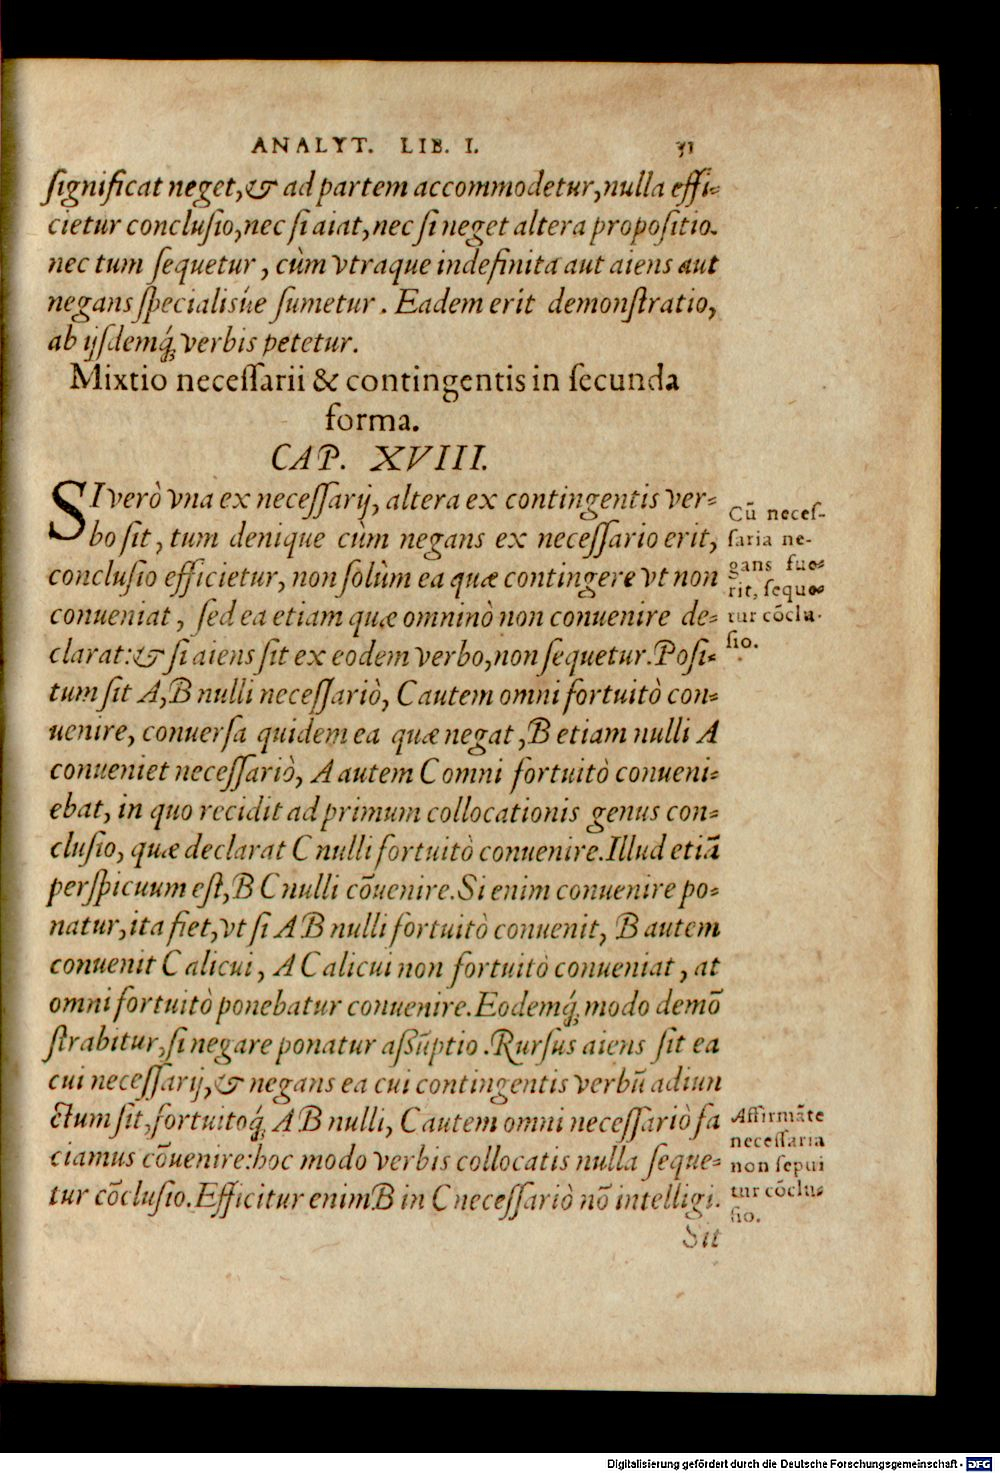 ANALYT. LIB. I. 31
significat neget, & ad partem accommodetur, nulla effi-
cietur conclusio, nec si aiat, nec si neget altera propositio.
nec tum sequetur, cùm vtraque indefinita aut aiens aut
negans specialisúe sumetur. Eadem erit demonstratio,
ab ijsdemq́; verbis petetur.
Mixtio necessarii & contingentis in secunda
forma.
CAP. XVIII.
SI verò vna ex necessarij, altera ex contingentis ver-
bo sit, tum denique cùm negans ex necessario erit,
conclusio efficietur, non solùm ea quæ contingere vt non
conueniat, sed ea etiam quæ omninò non conuenire de-
clarat: & si aiens sit ex eodem verbo, non sequetur. Posi-
tum sit A, B nulli necessariò, C autem omni fortuitò con-
uenire, conuersa quidem ea quæ negat, B etiam nulli A
conueniet necessariò, A autem C omni fortuitò conueni-
ebat, in quo recidit ad primum collocationis genus con-
clusio, quæ declarat C nulli fortuitò conuenire. Illud etiã
perspicuum est, B C nulli cõuenire. Si enim conuenire po-
natur, ita fiet, vt si A B nulli fortuitò conuenit, B autem
conuenit C alicui, A C alicui non fortuitò conueniat, at
omni fortuitò ponebatur conuenire. Eodemq́; modo demõ
strabitur, si negare ponatur assũptio. Rursus aiens sit ea
cui necessarij, & negans ea cui contingentis verbũ adiun
ctum sit, fortuitoq́; A B nulli, C autem omni necessariò fa
ciamus cõuenire: hoc modo verbis collocatis nulla seque-
tur cõclusio. Efficitur enim B in C necessariò nõ intelligi.
Sit
Cũ neces-
saria ne-
gans fue-
rit, seque-
tur cõclu-
sio.
Affirmãte
necessaria
non sequi
tur cõclu-
sio.
Digitalisierung gefördert durch die Deutsche Forschungsgemeinschaft - DFG